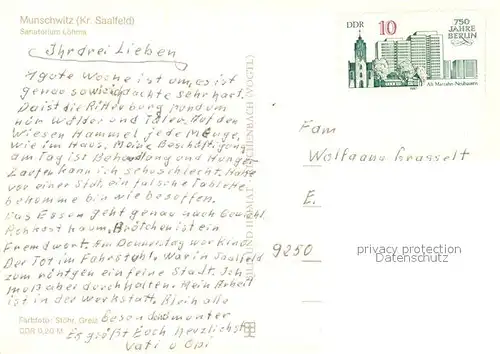 Munschwitz (Kr. Saalfeld)
Sanatorium Löhma
Ihr drei Lieben
1 gute Woche ist um, es ist
genau so wie ich dachte sehr hart.
Da ist die Ritterburg rundum
nur Wälder und Täler. Auf den
Wiesen Hammel jede Menge,
wie im Haus. Meine Beschäftigung
am Tag ist Behandlung und Hunger.
Laufen kann ich sehr schlecht. Habe
vor einer Std. ein falsche Tablette
bekomme bin wie besoffen.
Das Essen geht genau nach
Rohkost kaum, Brötchen ist ein
Fremdwort. Am Donnerstag war Kino:
Der Tot im Fahrstuhl. War in Saalfeld
zum röntgen ein feine Stadt. Ich
muß aber durchhalten. Mein Arbeit
ist in der Werkstatt. Bleib alle
besonders munter
Es grüßt Euch herzlichst
Vati u Opi
Farbfoto: Stöhr, Greiz
DDR 0,20 M
BILD UND HEIMAT REICHENBACH (VOGTL)
DDR 10
750 JAHRE BERLIN
Alt Marzahn-Neubauten
1987
Fam
Wolfgang Grasselt
E.
9250
privacy protection
Datenschutz